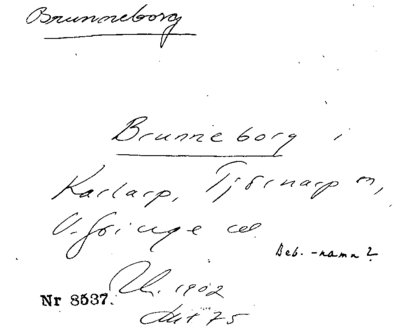 Brunneborg
Brunneborg i
Karlarp, Tjörnarp sn,
V. Göinge hd
Beb.-namn?
1902
Nr 8537.
75